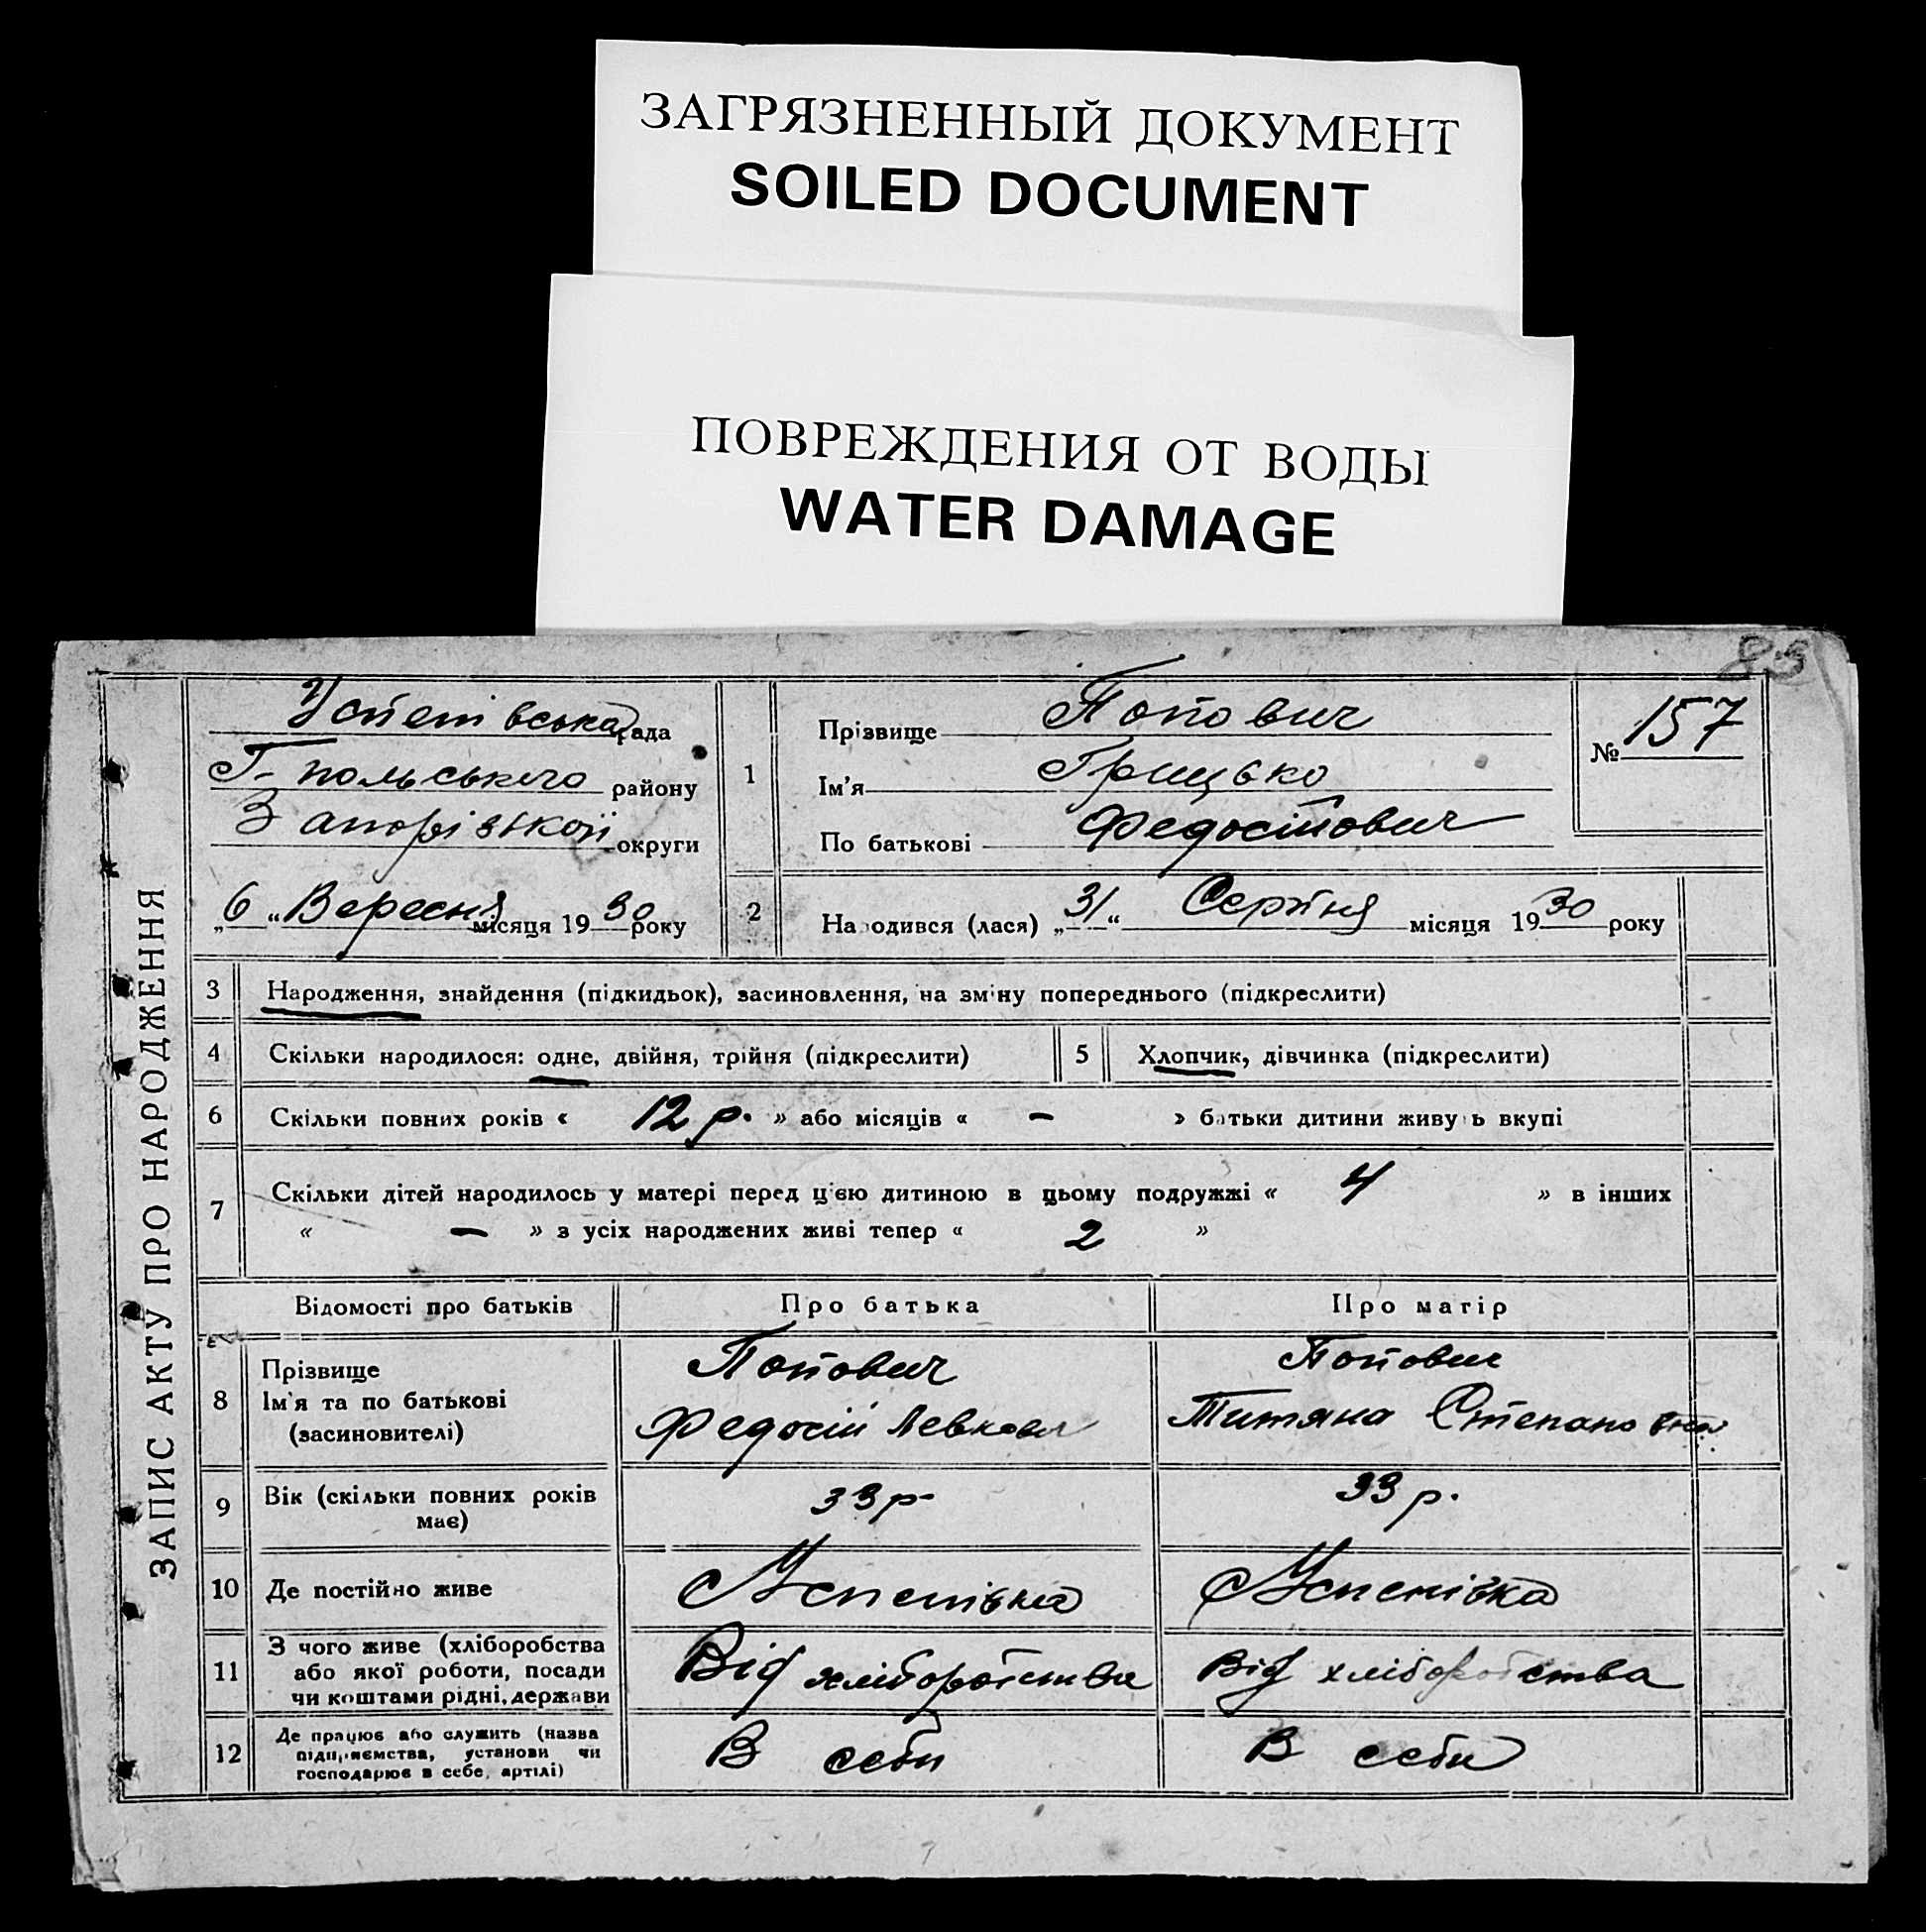 ЗАГРЯЗНЕННЫЙ ДОКУМЕНТ
SOILED DOCUMENT
ПОВРЕЖДЕНИЯ ОТ ВОДЫ
WATER DAMAGE
83
ЗАПИС АКТУ ПРО НАРОДЖЕННЯ
Успенівська рада
Г-польського району
Запорізької округи
„6“ Вересня місяця 1930 року
1
Прізвище Попович
Ім'я Грицько
По батькові Федосійович
№ 157
2 Народився (лася) „31“ Серпня місяця 1930 року
3 Народження, знайдення (підкидьок), засиновлення, на зміну попереднього (підкреслити)
4 Скільки народилося: одне, двійня, трійня (підкреслити) 5 Хлопчик, дівчинка (підкреслити)
6 Скільки повних років « 12 р. » або місяців « – » батьки дитини живуть вкупі
7 Скільки дітей народилось у матері перед цією дитиною в цьому подружжі « 4 » в інших
« – » з усіх народжених живі тепер « 2 »
Відомості про батьків Про батька Про матір
8 Прізвище Попович Попович
Ім'я та по батькові Федосій Левков Титяна Степановна
(засиновителі)
9 Вік (скільки повних років має) 33 р. 33 р.
10 Де постійно живе Успенівка Успенівка
11 З чого живе (хліборобства або якої роботи, посади чи коштами рідні, держави Від хліборобства Від хліборобства
12 Де працює або служить (назва підприємства, установи чи господарює в себе, артілі) В себи В себи